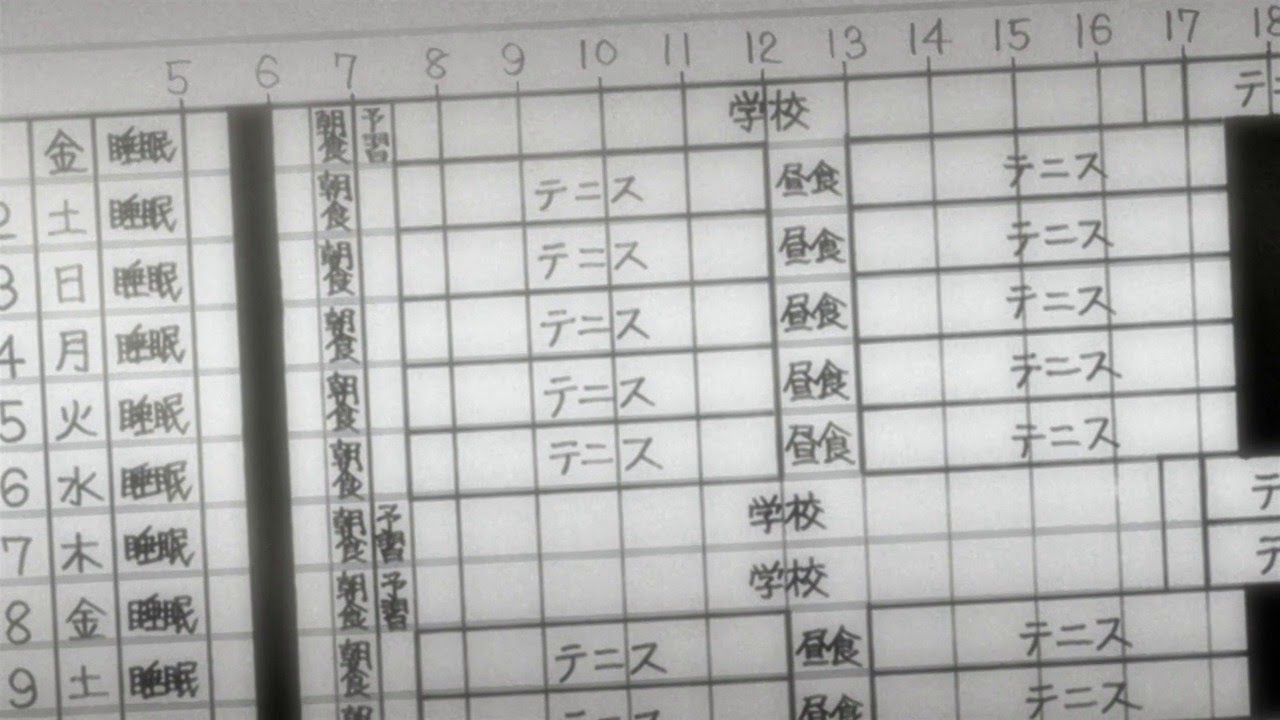 5 6 7 8 9 10 11 12 13 14 15 16 17 18
金 睡眠 朝食 予習 学校 テニ
2 土 睡眠 朝食 テニス 昼食 テニス
3 日 睡眠 朝食 テニス 昼食 テニス
4 月 睡眠 朝食 テニス 昼食 テニス
5 火 睡眠 朝食 テニス 昼食 テニス
6 水 睡眠 朝食 テニス 昼食 テニス
7 木 睡眠 朝食 予習 学校 テ
8 金 睡眠 朝食 予習 学校 テ
9 土 睡眠 朝食 テニス 昼食 テニス
朝 テニス 昼食 テニス